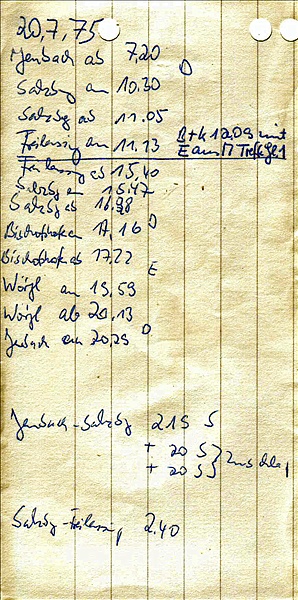 20,7,75
Jenbach ab 7,20
D
Salzbg an 10.30
Salzbg ab 11.05
Freilassing an 11.13 D+k 12,09 mit
Freilassg ab 15,40 E am 17 Treff Gl 1
Salzbg an 15.47
Salzbg ab 16.98
Bischofshofen 17,16 D
Bischofshof ab 17.22
E
Wörgl an 19,59
Wörgl ab 20,13
D
Jenbach an 20,29
Jenbach-Salzbg 215 S
+ 20 S
+ 20 S } Zuschlag
Salzbg-Freilassg 2.40